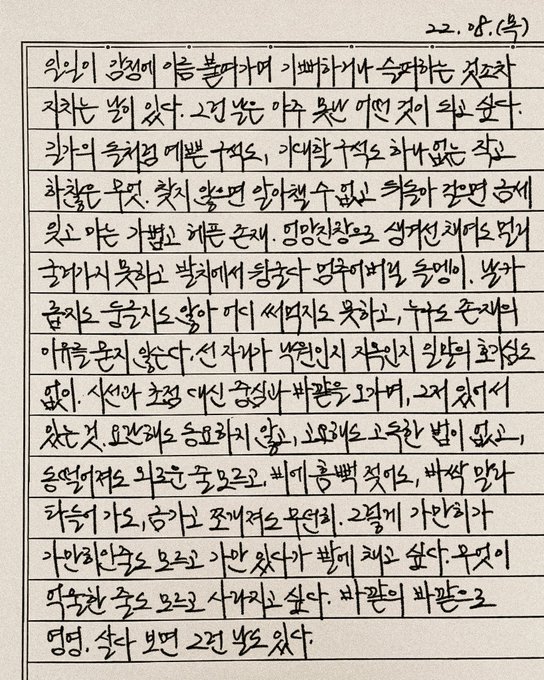 22. 08. (목)
일일이 감정에 이름 붙여가며 기뻐하거나 슬퍼하는 것조차
지치는 날이 있다. 그런 날은 아주 못난 어떤 것이 되고 싶다.
길가의 돌처럼 예쁜 구석도, 기대할 구석도 하나 없는 작고
하찮은 무엇. 찾지 않으면 알아챌 수 없고 뒤돌아 걸으면 금세
잊고 마는 가볍고 헤픈 존재. 엉망진창으로 생겨선 채여도 멀리
굴러가지 못하고 발치에서 뒹굴다 멈추어버릴 돌멩이. 날카
롭지도 둥글지도 않아 어디 써먹지도 못하고, 누구도 존재의
이유를 묻지 않는다. 선 자리가 낙원인지 지옥인지 일말의 호기심도
없이. 시선과 초점 대신 중심과 바깥을 오가며, 그저 있어서
있는 것. 요란해도 동요하지 않고, 고요해도 고독한 법이 없고,
동떨어져도 외로운 줄 모르고, 비에 흠뻑 젖어도, 바싹 말라
타들어 가도, 금가고 쪼개져도 무던히. 그렇게 가만히가
가만히인줄도 모르고 가만 있다가 발에 채고 싶다. 무엇이
억울한 줄도 모르고 사라지고 싶다. 바깥의 바깥으로
영영. 살다 보면 그런 날도 있다.